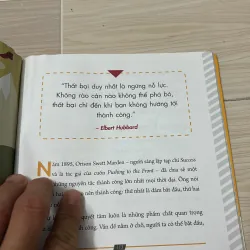 "Thất bại duy nhất là ngừng nỗ lực.
Không rào cản nào không thể phá bỏ,
thất bại chỉ đến khi bạn không hướng tới
thành công."
– Elbert Hubbard
Năm 1892, Orison Swett Marden – người sáng lập tạp chí Success
và là tác giả của cuốn Pushing to the Front – đã chia sẻ một
những nguyên tắc thành công lớn nhất mọi thời đại. Ông nói
nên thành công: thứ nhất là dám bắt đầu, thứ hai
quyết tâm luôn là những phẩm chất quan trọng
công. Vấn đề nằm ở chỗ, người ta có thể bắt đầu,